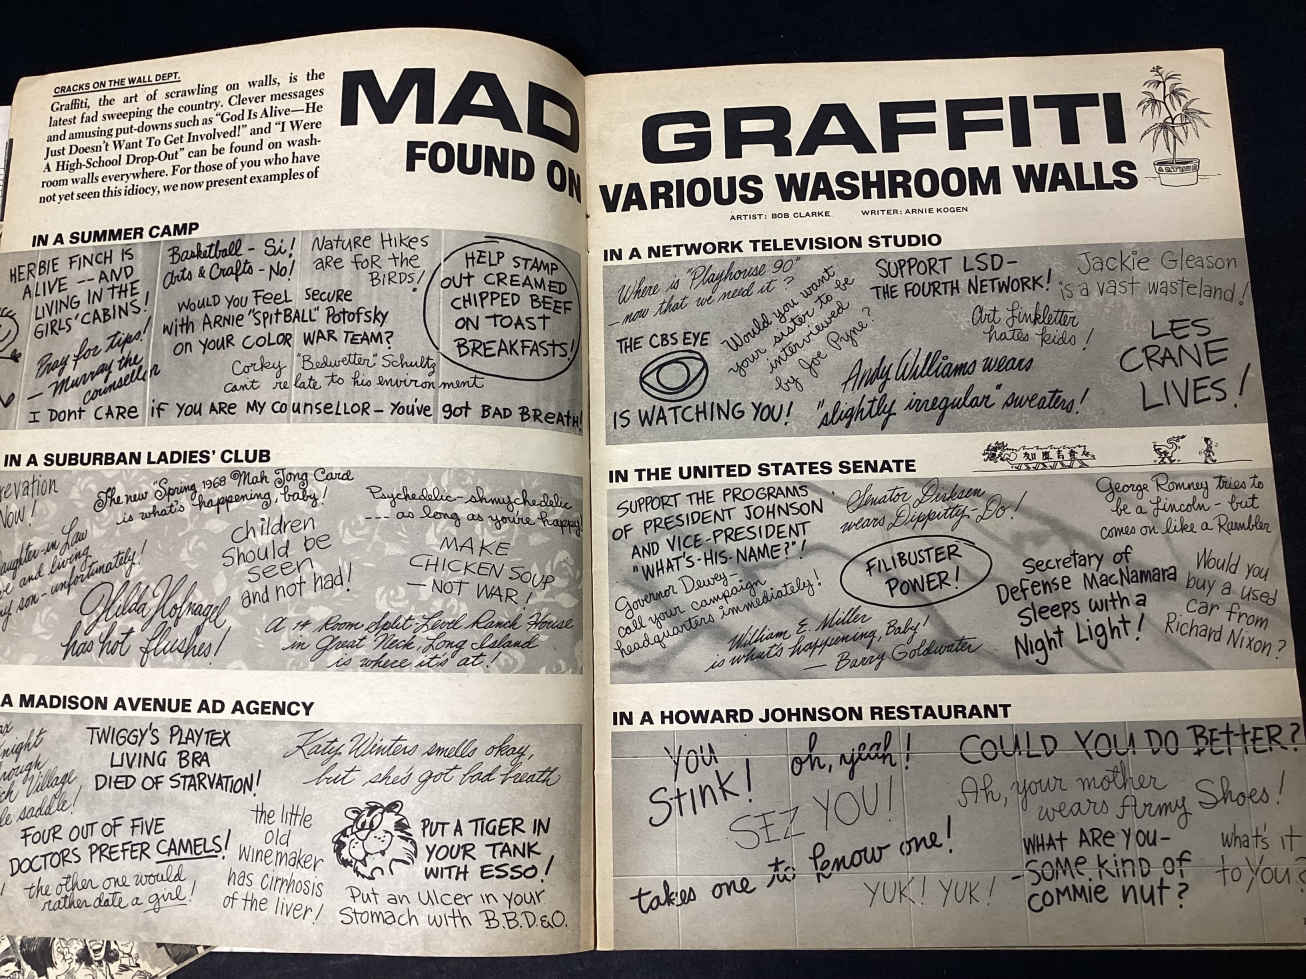 CRACKS ON THE WALL DEPT.
Graffiti, the art of scrawling on walls, is the
latest fad sweeping the country. Clever messages
and amusing put-downs such as "God Is Alive—He
Just Doesn't Want To Get Involved!" and "I Were
A High-School Drop-Out" can be found on wash-
room walls everywhere. For those of you who have
not yet seen this idiocy, we now present examples of
MAD GRAFFITI
FOUND ON VARIOUS WASHROOM WALLS
ARTIST: BOB CLARKE WRITER: ARNIE KOGEN
IN A SUMMER CAMP
HERBIE FINCH IS
ALIVE -- AND
LIVING IN THE
GIRLS' CABINS!
Pray for tips!
— Murray the
counsellor
Basketball - Si!
Arts & Crafts - No!
Nature Hikes
are for the
BIRDS!
Would you feel secure
with Arnie "Spitball" Potofsky
on your color war team?
Corky "Bedwetter" Schultz
can't relate to his environment
HELP STAMP
OUT CREAMED
CHIPPED BEEF
ON TOAST
BREAKFASTS!
I DONT CARE if YOU ARE MY COUNSELLOR - YOU'VE got BAD BREATH!
IN A SUBURBAN LADIES' CLUB
Now!
The new "Spring 1968 Mah Jong Card
is what's happening, baby!
Psychedelic-shmychedelic
--- as long as you're happy!
and living
my son - unfortunately!
children
should be
seen
and not had!
MAKE
CHICKEN SOUP
— NOT WAR!
Hilda Hofnagel
has hot flushes!
A 14 Room Split-Level Ranch House
in Great Neck, Long Island
is where it's at!
A MADISON AVENUE AD AGENCY
Village
saddle!
TWIGGY'S PLAYTEX
LIVING BRA
DIED OF STARVATION!
Katy Winters smells okay,
but she's got bad breath
FOUR OUT OF FIVE
DOCTORS PREFER CAMELS!
the other one would
rather date a girl!
the little
old
winemaker
has cirrhosis
of the liver!
PUT A TIGER IN
YOUR TANK
WITH ESSO!
Put an Ulcer in your
Stomach with B.B.D.&O.
IN A NETWORK TELEVISION STUDIO
Where is "Playhouse 90"
— now that we need it?
Would you want
your sister to be
interviewed
by Joe Pyne?
SUPPORT LSD-
THE FOURTH NETWORK!
Jackie Gleason
is a vast wasteland!
THE CBS EYE
IS WATCHING YOU!
Art Linkletter
hates kids!
Andy Williams wears
"slightly irregular" sweaters!
LES
CRANE
LIVES!
IN THE UNITED STATES SENATE
SUPPORT THE PROGRAMS
OF PRESIDENT JOHNSON
AND VICE-PRESIDENT
"WHAT'S-HIS-NAME?"!
Senator Dirksen
wears Dippitty-Do!
George Romney tries to
be a Lincoln - but
comes on like a Rambler
FILIBUSTER
POWER!
Governor Dewey —
call your campaign
headquarters immediately!
William E. Miller
is what's happening, Baby!
— Barry Goldwater
Secretary of
Defense MacNamara
sleeps with a
Night Light!
Would you
buy a used
car from
Richard Nixon?
IN A HOWARD JOHNSON RESTAURANT
YOU
Stink!
oh, yeah!
COULD YOU DO BETTER?!
SEZ YOU!
Ah, your mother
wears Army Shoes!
takes one to know one!
YUK! YUK!
WHAT ARE YOU-
-SOME KIND OF
COMMIE NUT?
what's it
to you?